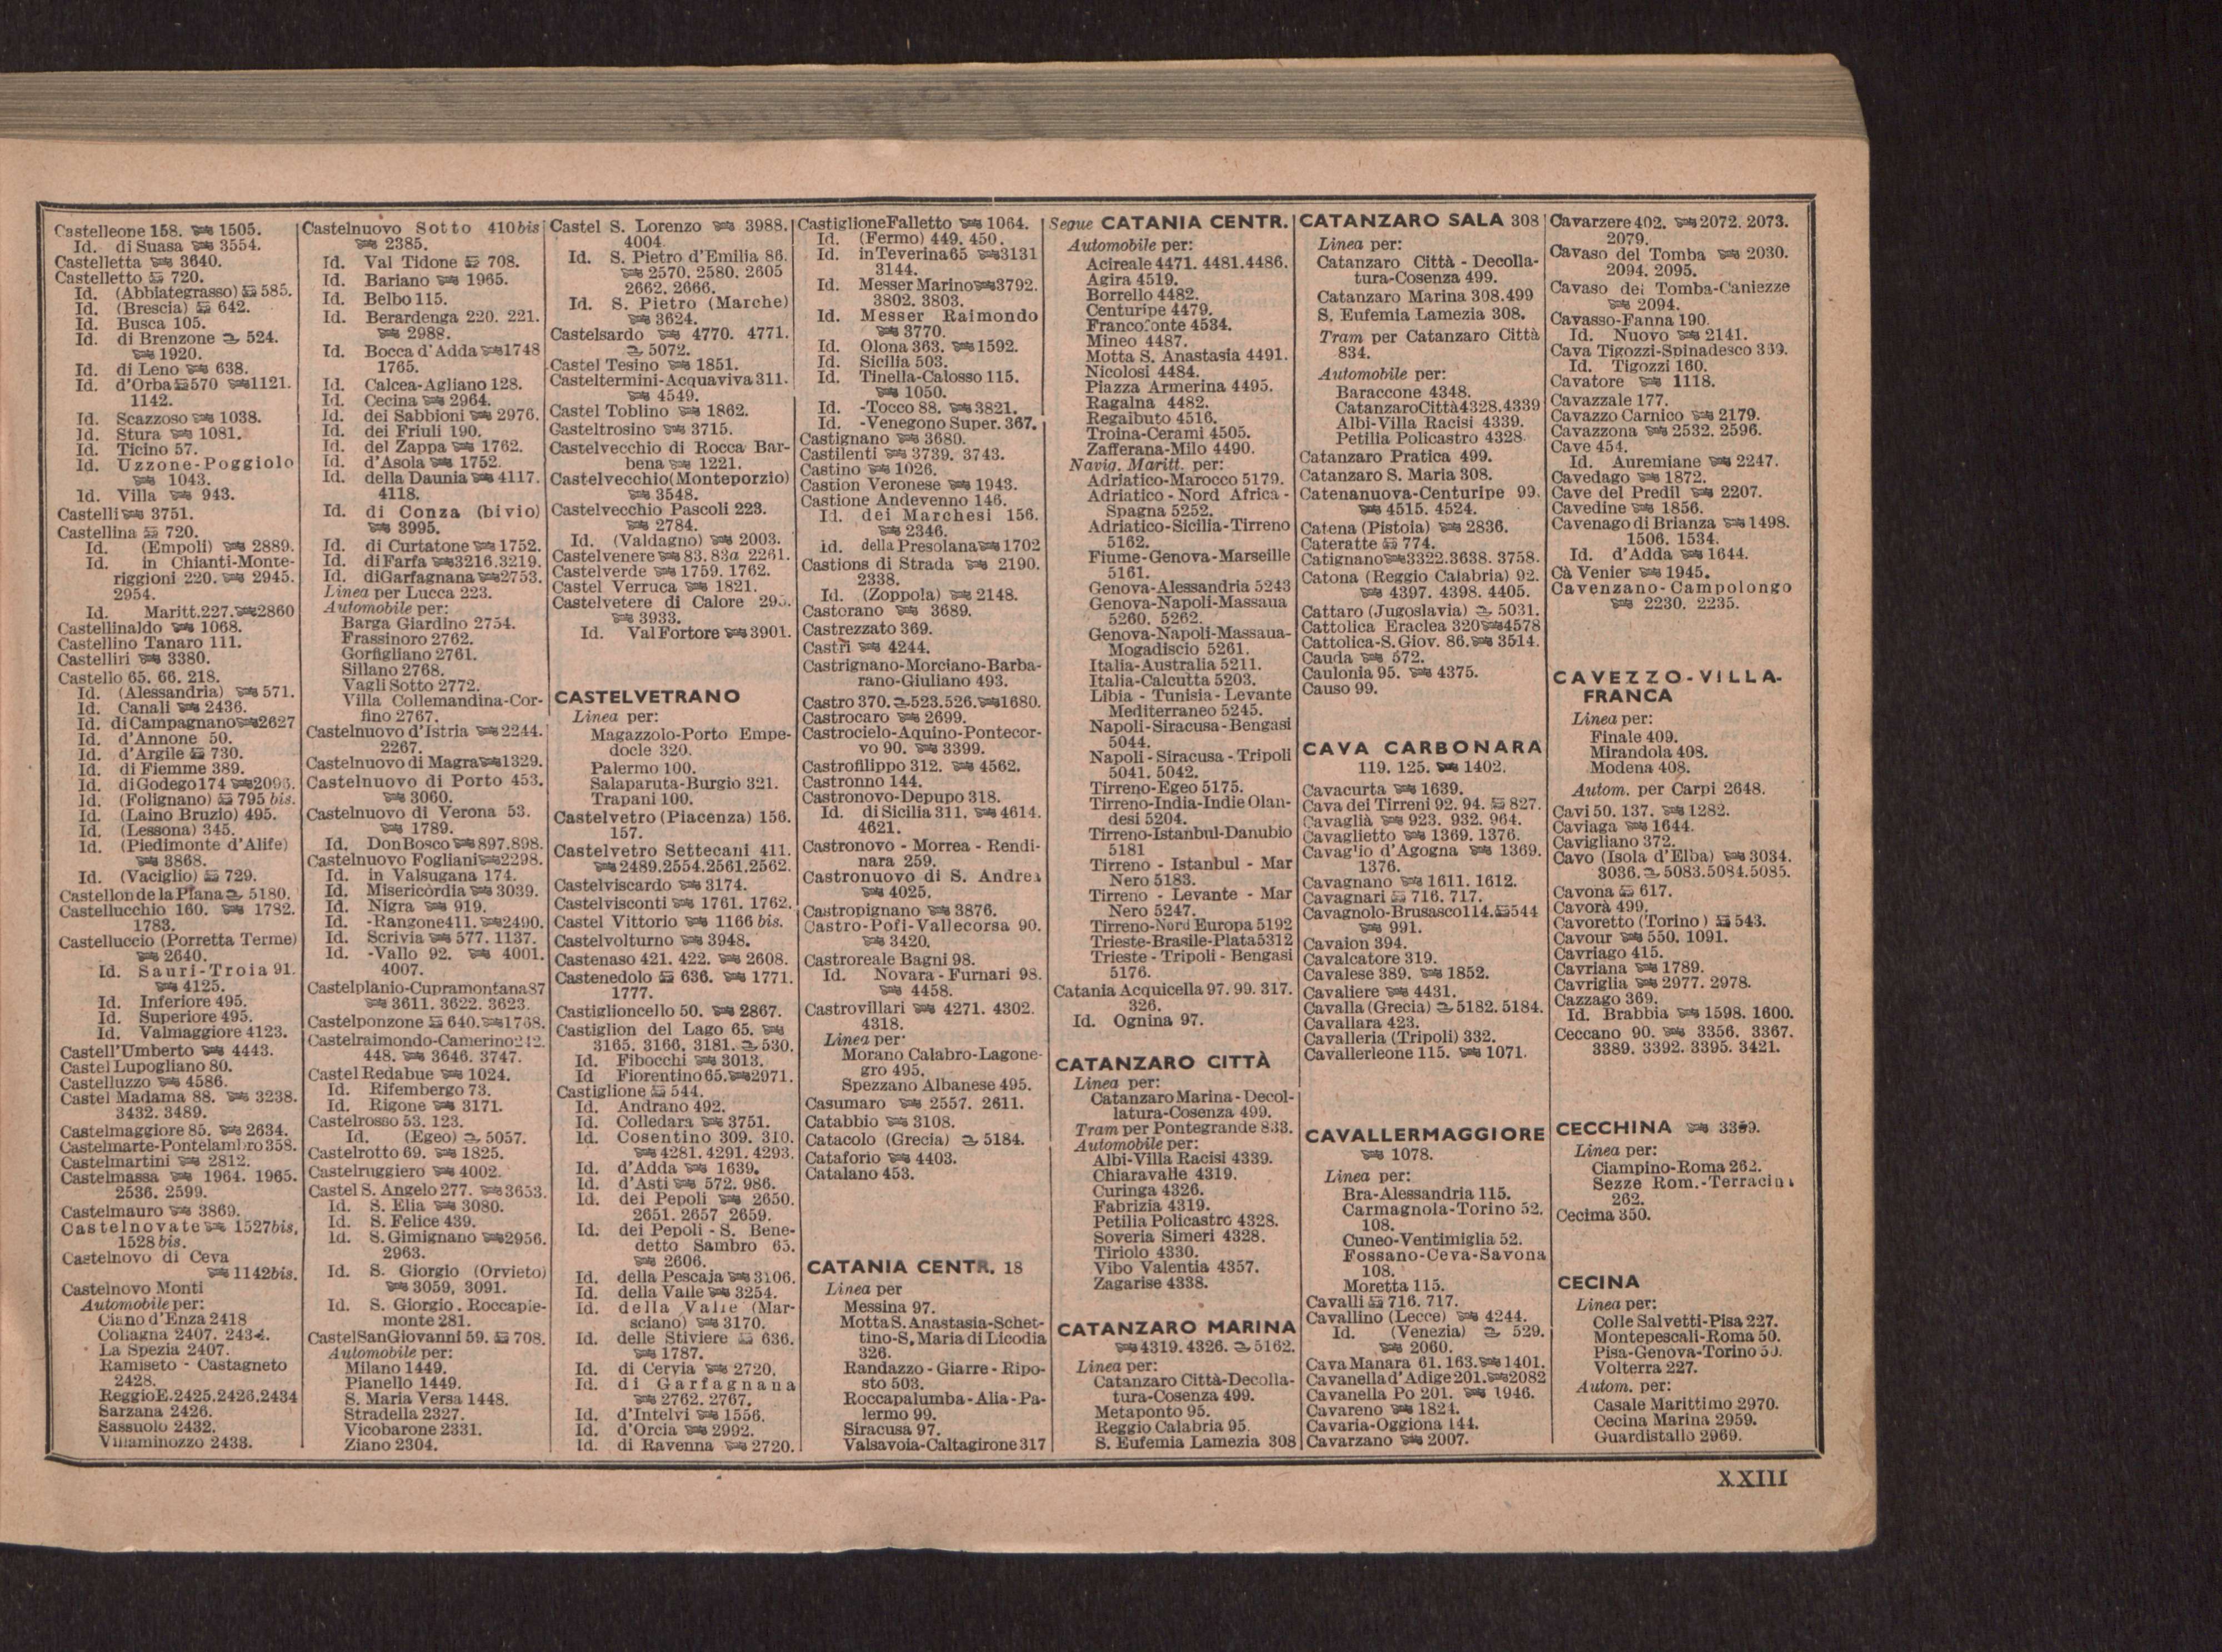 Castelleone 158. 1505.
Id. di Suasa 3554.
Castelletta 3640.
Castelletto 720.
Id. (Abbiategrasso) 585.
Id. (Brescia) 642.
Id. Busca 105.
Id. di Brenzone 524.
1920.
Id. di Leno 638.
Id. d'Orba 570 1121.
1142.
Id. Scazzoso 1038.
Id. Stura 1081.
Id. Ticino 57.
Id. Uzzone-Poggiolo
1043.
Id. Villa 943.
Castelli 3751.
Castellina 720.
Id. (Empoli) 2889.
Id. in Chianti-Monte-
riggioni 220. 2945.
2954.
Id. Maritt. 227. 2860
Castellinaldo 1068.
Castellino Tanaro 111.
Castelliri 3380.
Castello 65. 66. 218.
Id. (Alessandria) 571.
Id. Canali 2436.
Id. di Campagnano 2627
Id. d'Annone 50.
Id. d'Argile 730.
Id. di Fiemme 389.
Id. di Godego 174
Id. (Folignano) 795 bis.
Id. (Laino Bruzio) 495.
Id. (Lessona) 345.
Id. (Piedimonte d'Alife)
3868.
Id. (Vaciglio) 729.
Castellon de la Plana 5180.
Castellucchio 160. 1782.
1783.
Castelluccio (Porretta Terme)
2640.
Id. Sauri-Troia 91.
4125.
Id. Inferiore 495.
Id. Superiore 495.
Id. Valmaggiore 4123.
Castell'Umberto 4443.
Castel Lupogliano 80.
Castelluzzo 4586.
Castel Madama 88. 3238.
3432. 3489.
Castelmaggiore 85. 2634.
Castelmarte-Pontelambro 358.
Castelmartini 2812.
Castelmassa 1964. 1965.
2536. 2599.
Castelmauro 3869.
Castelnovate 1527bis.
1528 bis.
Castelnovo di Ceva
1142bis.
Castelnovo Monti
Automobile per:
Ciano d'Enza 2418
Collagna 2407. 2434.
La Spezia 2407.
Ramiseto - Castagneto
2428.
Reggio E. 2425.2426.2434
Sarzana 2426.
Sassuolo 2432.
Villaminozzo 2433.
Castelnuovo Sotto 410bis
2385.
Id. Val Tidone 708.
Id. Bariano 1965.
Id. Belbo 115.
Id. Berardenga 220. 221.
2988.
Id. Bocca d'Adda 1748
1765.
Id. Calcea-Agliano 128.
Id. Cecina 2964.
Id. dei Sabbioni 2976.
Id. dei Friuli 190.
Id. del Zappa 1762.
Id. d'Asola 1752.
Id. della Daunia 4117.
4118.
Id. di Conza (bivio)
3995.
Id. di Curtatone 1752.
Id. di Farfa 3216.3219.
Id. di Garfagnana 2753.
Linea per Lucca 223.
Automobile per:
Barga Giardino 2754.
Frassinoro 2762.
Gorfigliano 2761.
Sillano 2768.
Vagli Sotto 2772.
Villa Collemandina-Cor-
fino 2767.
Castelnuovo d'Istria 2244.
2267.
Castelnuovo di Magra 1329.
Castelnuovo di Porto 453.
3060.
Castelnuovo di Verona 53.
1789.
Id. Don Bosco 897.898.
Castelnuovo Fogliani 2298.
Id. in Valsugana 174.
Id. Misericordia 3039.
Id. Nigra 919.
Id. -Rangone 411. 2490.
Id. Scrivia 577. 1137.
Id. -Vallo 92. 4001.
4007.
Castelplanio-Cupramontana 87
3611. 3622. 3623.
Castelponzone 640. 1768.
Castelraimondo-Camerino
448. 3646. 3747.
Castel Redabue 1024.
Id. Rifembergo 73.
Id. Rigone 3171.
Castelrosso 53. 123.
Id. (Egeo) 5057.
Castelrotto 69. 1825.
Castelruggiero 4002.
Castel S. Angelo 277. 3653.
Id. S. Elia 3080.
Id. S. Felice 439.
Id. S. Gimignano 2956.
2963.
Id. S. Giorgio (Orvieto)
3059, 3091.
Id. S. Giorgio. Roccapie-
monte 281.
Castel San Giovanni 59. 708.
Automobile per:
Milano 1449.
Pianello 1449.
S. Maria Versa 1448.
Stradella 2327.
Vicobarone 2331.
Ziano 2304.
Castel S. Lorenzo 3988.
4004.
Id. S. Pietro d'Emilia 86.
2570. 2580. 2605
2662. 2666.
Id. S. Pietro (Marche)
3624.
Castelsardo 4770. 4771.
5072.
Castel Tesino 1851.
Casteltermini-Acquaviva 311.
4549.
Castel Toblino 1862.
Casteltrosino 3715.
Castelvecchio di Rocca Bar-
bena 1221.
Castelvecchio (Monteporzio)
3548.
Castelvecchio Pascoli 223.
2784.
Id. (Valdagno) 2003.
Castelvenere 83. 83a 2261.
Castelverde 1759. 1762.
Castel Verruca 1821.
Castelvetere di Calore 295.
3933.
Id. Val Fortore 3901.
CASTELVETRANO
Linea per:
Magazzolo-Porto Empe-
docle 320.
Palermo 100.
Salaparuta-Burgio 321.
Trapani 100.
Castelvetro (Piacenza) 156.
157.
Castelvetro Settecani 411.
2489.2554.2561.2562.
Castelviscardo 3174.
Castelvisconti 1761. 1762.
Castel Vittorio 1166 bis.
Castelvolturno 3948.
Castenaso 421. 422. 2608.
Castenedolo 636. 1771.
1777.
Castiglioncello 50. 2867.
Castiglion del Lago 65.
3165. 3166. 3181. 530.
Id. Fibocchi 3013.
Id Fiorentino 65. 2971.
Castiglione 544.
Id. Andrano 492.
Id. Colledara 3751.
Id. Cosentino 309. 310.
4281. 4291. 4293.
Id. d'Adda 1639.
Id. d'Asti 572. 986.
Id. dei Pepoli 2650.
2651. 2657 2659.
Id. dei Pepoli - S. Bene-
detto Sambro 65.
2606.
Id. della Pescaja 3106.
Id. della Valle 3254.
Id. della Valle (Mar-
sciano) 3170.
Id. delle Stiviere 636.
1787.
Id. di Cervia 2720.
Id. di Garfagnana
2762. 2767.
Id. d'Intelvi 1556.
Id. d'Orcia 2992.
Id. di Ravenna 2720.
Castiglione Falletto 1064.
Id. (Fermo) 449. 450.
Id. in Teverina 65 3131
3144.
Id. Messer Marino 3792.
3802. 3803.
Id. Messer Raimondo
3770.
Id. Olona 363. 1592.
Id. Sicilia 503.
Id. Tinella-Calosso 115.
1050.
Id. -Tocco 88. 3821.
Id. -Venegono Super. 367.
Castignano 3680.
Castilenti 3739. 3743.
Castino 1026.
Castion Veronese 1943.
Castione Andevenno 146.
Id. dei Marchesi 156.
2346.
id. della Presolana 1702
Castions di Strada 2190.
2338.
Id. (Zoppola) 2148.
Castorano 3689.
Castrezzato 369.
Castrì 4244.
Castrignano-Morciano-Barba-
rano-Giuliano 493.
Castro 370. 523.526. 1680.
Castrocaro 2699.
Castrocielo-Aquino-Pontecor-
vo 90. 3399.
Castrofilippo 312. 4562.
Castronno 144.
Castronovo-Depupo 318.
Id. di Sicilia 311. 4614.
4621.
Castronovo - Morrea - Rendi-
nara 259.
Castronuovo di S. Andrea
4025.
Castropignano 3876.
Castro-Pofi-Vallecorsa 90.
3420.
Castroreale Bagni 98.
Id. Novara - Furnari 98.
4458.
Castrovillari 4271. 4302.
4318.
Linea per:
Morano Calabro-Lagone-
gro 495.
Spezzano Albanese 495.
Casumaro 2557. 2611.
Catabbio 3108.
Catacolo (Grecia) 5184.
Cataforio 4403.
Catalano 453.
CATANIA CENTR. 18
Linea per
Messina 97.
Motta S. Anastasia-Schet-
tino-S. Maria di Licodia
326.
Randazzo - Giarre - Ripo-
sto 503.
Roccapalumba-Alia-Pa-
lermo 99.
Siracusa 97.
Valsavoia-Caltagirone 317
Segue CATANIA CENTR.
Automobile per:
Acireale 4471. 4481.4486.
Agira 4519.
Borrello 4482.
Centuripe 4479.
Francofonte 4534.
Mineo 4487.
Motta S. Anastasia 4491.
Nicolosi 4484.
Piazza Armerina 4495.
Ragalna 4482.
Regalbuto 4516.
Troina-Cerami 4505.
Zafferana-Milo 4490.
Navig. Maritt. per:
Adriatico-Marocco 5179.
Adriatico - Nord Africa -
Spagna 5252.
Adriatico-Sicilia-Tirreno
5162.
Fiume-Genova-Marseille
5161.
Genova-Alessandria 5243
Genova-Napoli-Massaua
5260. 5262.
Genova-Napoli-Massaua-
Mogadiscio 5261.
Italia-Australia 5211.
Italia-Calcutta 5203.
Libia - Tunisia - Levante
Mediterraneo 5245.
Napoli-Siracusa-Bengasi
5044.
Napoli - Siracusa - Tripoli
5041. 5042.
Tirreno-Egeo 5175.
Tirreno-India-Indie Olan-
desi 5204.
Tirreno-Istanbul-Danubio
5181
Tirreno - Istanbul - Mar
Nero 5183.
Tirreno - Levante - Mar
Nero 5247.
Tirreno-Nord Europa 5192
Trieste-Brasile-Plata 5312
Trieste - Tripoli - Bengasi
5176.
Catania Acquicella 97. 99. 317.
326.
Id. Ognina 97.
CATANZARO CITTÀ
Linea per:
Catanzaro Marina - Decol-
latura-Cosenza 499.
Tram per Pontegrande 833.
Automobile per:
Albi-Villa Racisi 4339.
Chiaravalle 4319.
Curinga 4326.
Fabrizia 4319.
Petilia Policastro 4328.
Soveria Simeri 4328.
Tiriolo 4330.
Vibo Valentia 4357.
Zagarise 4338.
CATANZARO MARINA
4319. 4326. 5162.
Linea per:
Catanzaro Città-Decolla-
tura-Cosenza 499.
Metaponto 95.
Reggio Calabria 95.
S. Eufemia Lamezia 308
CATANZARO SALA 308
Linea per:
Catanzaro Città - Decolla-
tura-Cosenza 499.
Catanzaro Marina 308.499
S. Eufemia Lamezia 308.
Tram per Catanzaro Città
834.
Automobile per:
Baraccone 4348.
Catanzaro Città 4328.4339
Albi-Villa Racisi 4339.
Petilia Policastro 4328.
Catanzaro Pratica 499.
Catanzaro S. Maria 308.
Catenanuova-Centuripe 99.
4515. 4524.
Catena (Pistoia) 2836.
Cateratte 774.
Catignano 3322.3638. 3758.
Catona (Reggio Calabria) 92.
4397. 4398. 4405.
Cattaro (Jugoslavia) 5031.
Cattolica Eraclea 320 4578
Cattolica-S. Giov. 86. 3514.
Cauda 572.
Caulonia 95. 4375.
Causo 99.
CAVA CARBONARA
119. 125. 1402.
Cavacurta 1639.
Cava dei Tirreni 92. 94. 827.
Cavaglià 923. 932. 964.
Cavaglietto 1369. 1376.
Cavaglio d'Agogna 1369.
1376.
Cavagnano 1611. 1612.
Cavagnari 716. 717.
Cavagnolo-Brusasco 114. 544
991.
Cavaion 394.
Cavalcatore 319.
Cavalese 389. 1852.
Cavaliere 4431.
Cavalla (Grecia) 5182. 5184.
Cavallara 423.
Cavalleria (Tripoli) 332.
Cavallerleone 115. 1071.
CAVALLERMAGGIORE
1078.
Linea per:
Bra-Alessandria 115.
Carmagnola-Torino 52.
108.
Cuneo-Ventimiglia 52.
Fossano-Ceva-Savona
108.
Moretta 115.
Cavalli 716. 717.
Cavallino (Lecce) 4244.
Id. (Venezia) 529.
2060.
Cava Manara 61. 163. 1401.
Cavanella d'Adige 201. 2082
Cavanella Po 201. 1946.
Cavareno 1824.
Cavaria-Oggiona 144.
Cavarzano 2007.
Cavarzere 402. 2072. 2073.
2079.
Cavaso del Tomba 2030.
2094. 2095.
Cavaso del Tomba-Caniezze
2094.
Cavasso-Fanna 190.
Id. Nuovo 2141.
Cava Tigozzi-Spinadesco 359.
Id. Tigozzi 160.
Cavatore 1118.
Cavazzale 177.
Cavazzo Carnico 2179.
Cavazzona 2532. 2596.
Cave 454.
Id. Auremiane 2247.
Cavedago 1872.
Cave del Predil 2207.
Cavedine 1856.
Cavenago di Brianza 1498.
1506. 1534.
Id. d'Adda 1644.
Cà Venier 1945.
Cavenzano-Campolongo
2230. 2235.
CAVEZZO-VILLA-
FRANCA
Linea per:
Finale 409.
Mirandola 408.
Modena 408.
Autom. per Carpi 2648.
Cavi 50. 137. 1282.
Caviaga 1644.
Cavigliano 372.
Cavo (Isola d'Elba) 3034.
3036. 5083.5084.5085.
Cavona 617.
Cavorà 499.
Cavoretto (Torino) 543.
Cavour 550. 1091.
Cavriago 415.
Cavriana 1789.
Cavriglia 2977. 2978.
Cazzago 369.
Id. Brabbia 1598. 1600.
Ceccano 90. 3356. 3367.
3389. 3392. 3395. 3421.
CECCHINA
Linea per:
Ciampino-Roma 262.
Sezze Rom.-Terracina
262.
Cecima 350.
CECINA
Linea per:
Colle Salvetti-Pisa 227.
Montepescali-Roma 50.
Pisa-Genova-Torino 50.
Volterra 227.
Autom. per:
Casale Marittimo 2970.
Cecina Marina 2959.
Guardistallo 2969.
XXIII